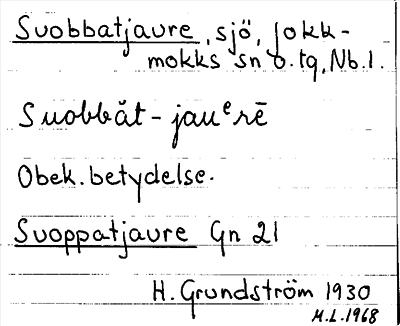 Suobbatjaure, sjö, Jokk-
mokks sn o. tg, Nb.l.
Suobbăt-jauᵉrē
Obek. betydelse.
Suoppatjaure Gn 21
H. Grundström 1930
M.L. 1968